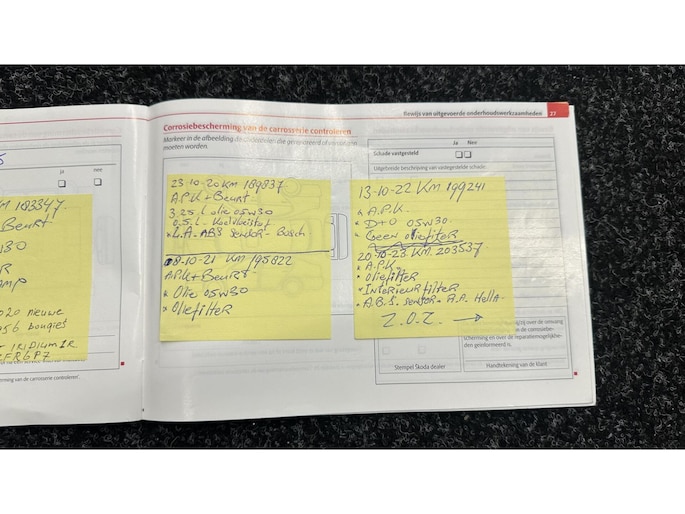 5
ja nee
KM 183347
Beurt
020 nieuwe
056 bougies
IRIDIUM IR
ZFR6P7
erming van de carrosserie controleren'.
Bewijs van uitgevoerde onderhoudswerkzaamheden 27
Corrosiebescherming van de carrosserie controleren
Markeer in de afbeelding de
moeten worden.
23-10-20 KM 189837
A.P.K + Beurt
3.25 L olie 05W30
0.5 L - Koelvloeistof
* L.A - ABS Sensor - Bosch
08-10-21 KM 195822
A.P.K + Beurt
* Olie 05W30
* Oliefilter
Ja Nee
Schade vastgesteld
Uitgebreide beschrijving van vastgestelde schade:
13-10-22 KM 199241
* A.P.K.
* D+O 05W30
* Geen oliefilter
20-10-23 KM 203537
* A.P.K
* Oliefilter
* Interieurfilter
* A.B.S. sensor R.A. Hella.
Z.O.Z →
over de omvang
en de corrosiebe-
scherming en over de reparatiemogelijkhe-
den geïnformeerd n.
Stempel Škoda dealer Handtekening van de klant